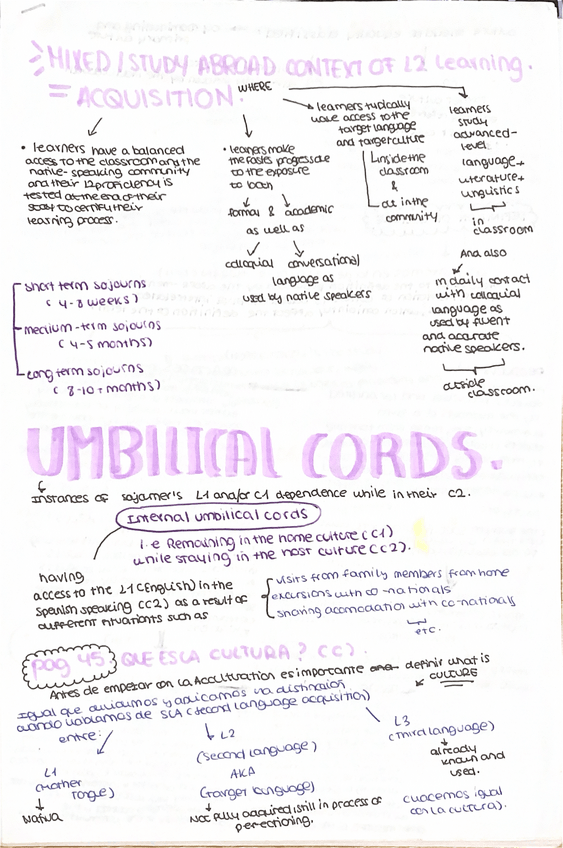 MIXED / STUDY ABROAD CONTEXT OF L2 Learning.
= ACQUISITION. WHERE
• learners have a balanced
access to the classroom and the
native-speaking community
and their L2 proficiency is
tested at the end of their
stay to certify their
learning process.
• learners make
the fastes progress due
to the exposure
to both
formal & academic
as well as
colloquial conversational
language as
used by native speakers
learners typically
have access to the
target language
and target culture
inside the
classroom
&
out in the
community
learners
study
advanced-
level
language +
literature +
linguistics
in
classroom
And also
in daily contact
with colloquial
language as
used by fluent
and accurate
native speakers.
outside
classroom.
short term sojourns
(4-8 weeks)
medium-term sojourns
(4-5 months)
Long term sojourns
(8-10+ months)
UMBILICAL CORDS.
Instances of sojourner's L1 and/or C1 dependence while in their C2.
Internal umbilical cords
i.e Remaining in the home culture (C1)
while staying in the host culture (C2).
having
access to the L1 (English) in the
Spanish speaking (C2) as a result of
different situations such as
visits from family members from home
excursions with co-nationals
sharing accomodation with co-nationals
etc.
pag 45. QUE ES LA CULTURA? (C).
Antes de empezar con la Acculturation es importante definir what is
CULTURE
Igual que dividimos y aplicamos una distinción
cuando hablamos de SLA (second language acquisition)
entre:
L1
(Mother
Tongue)
Nativa
L2
(second language)
AKA
(target language)
Not fully acquired i still in process of
perfectioning.
L3
(third language)
already
known and
used.
(Hacemos igual
con la cultura).